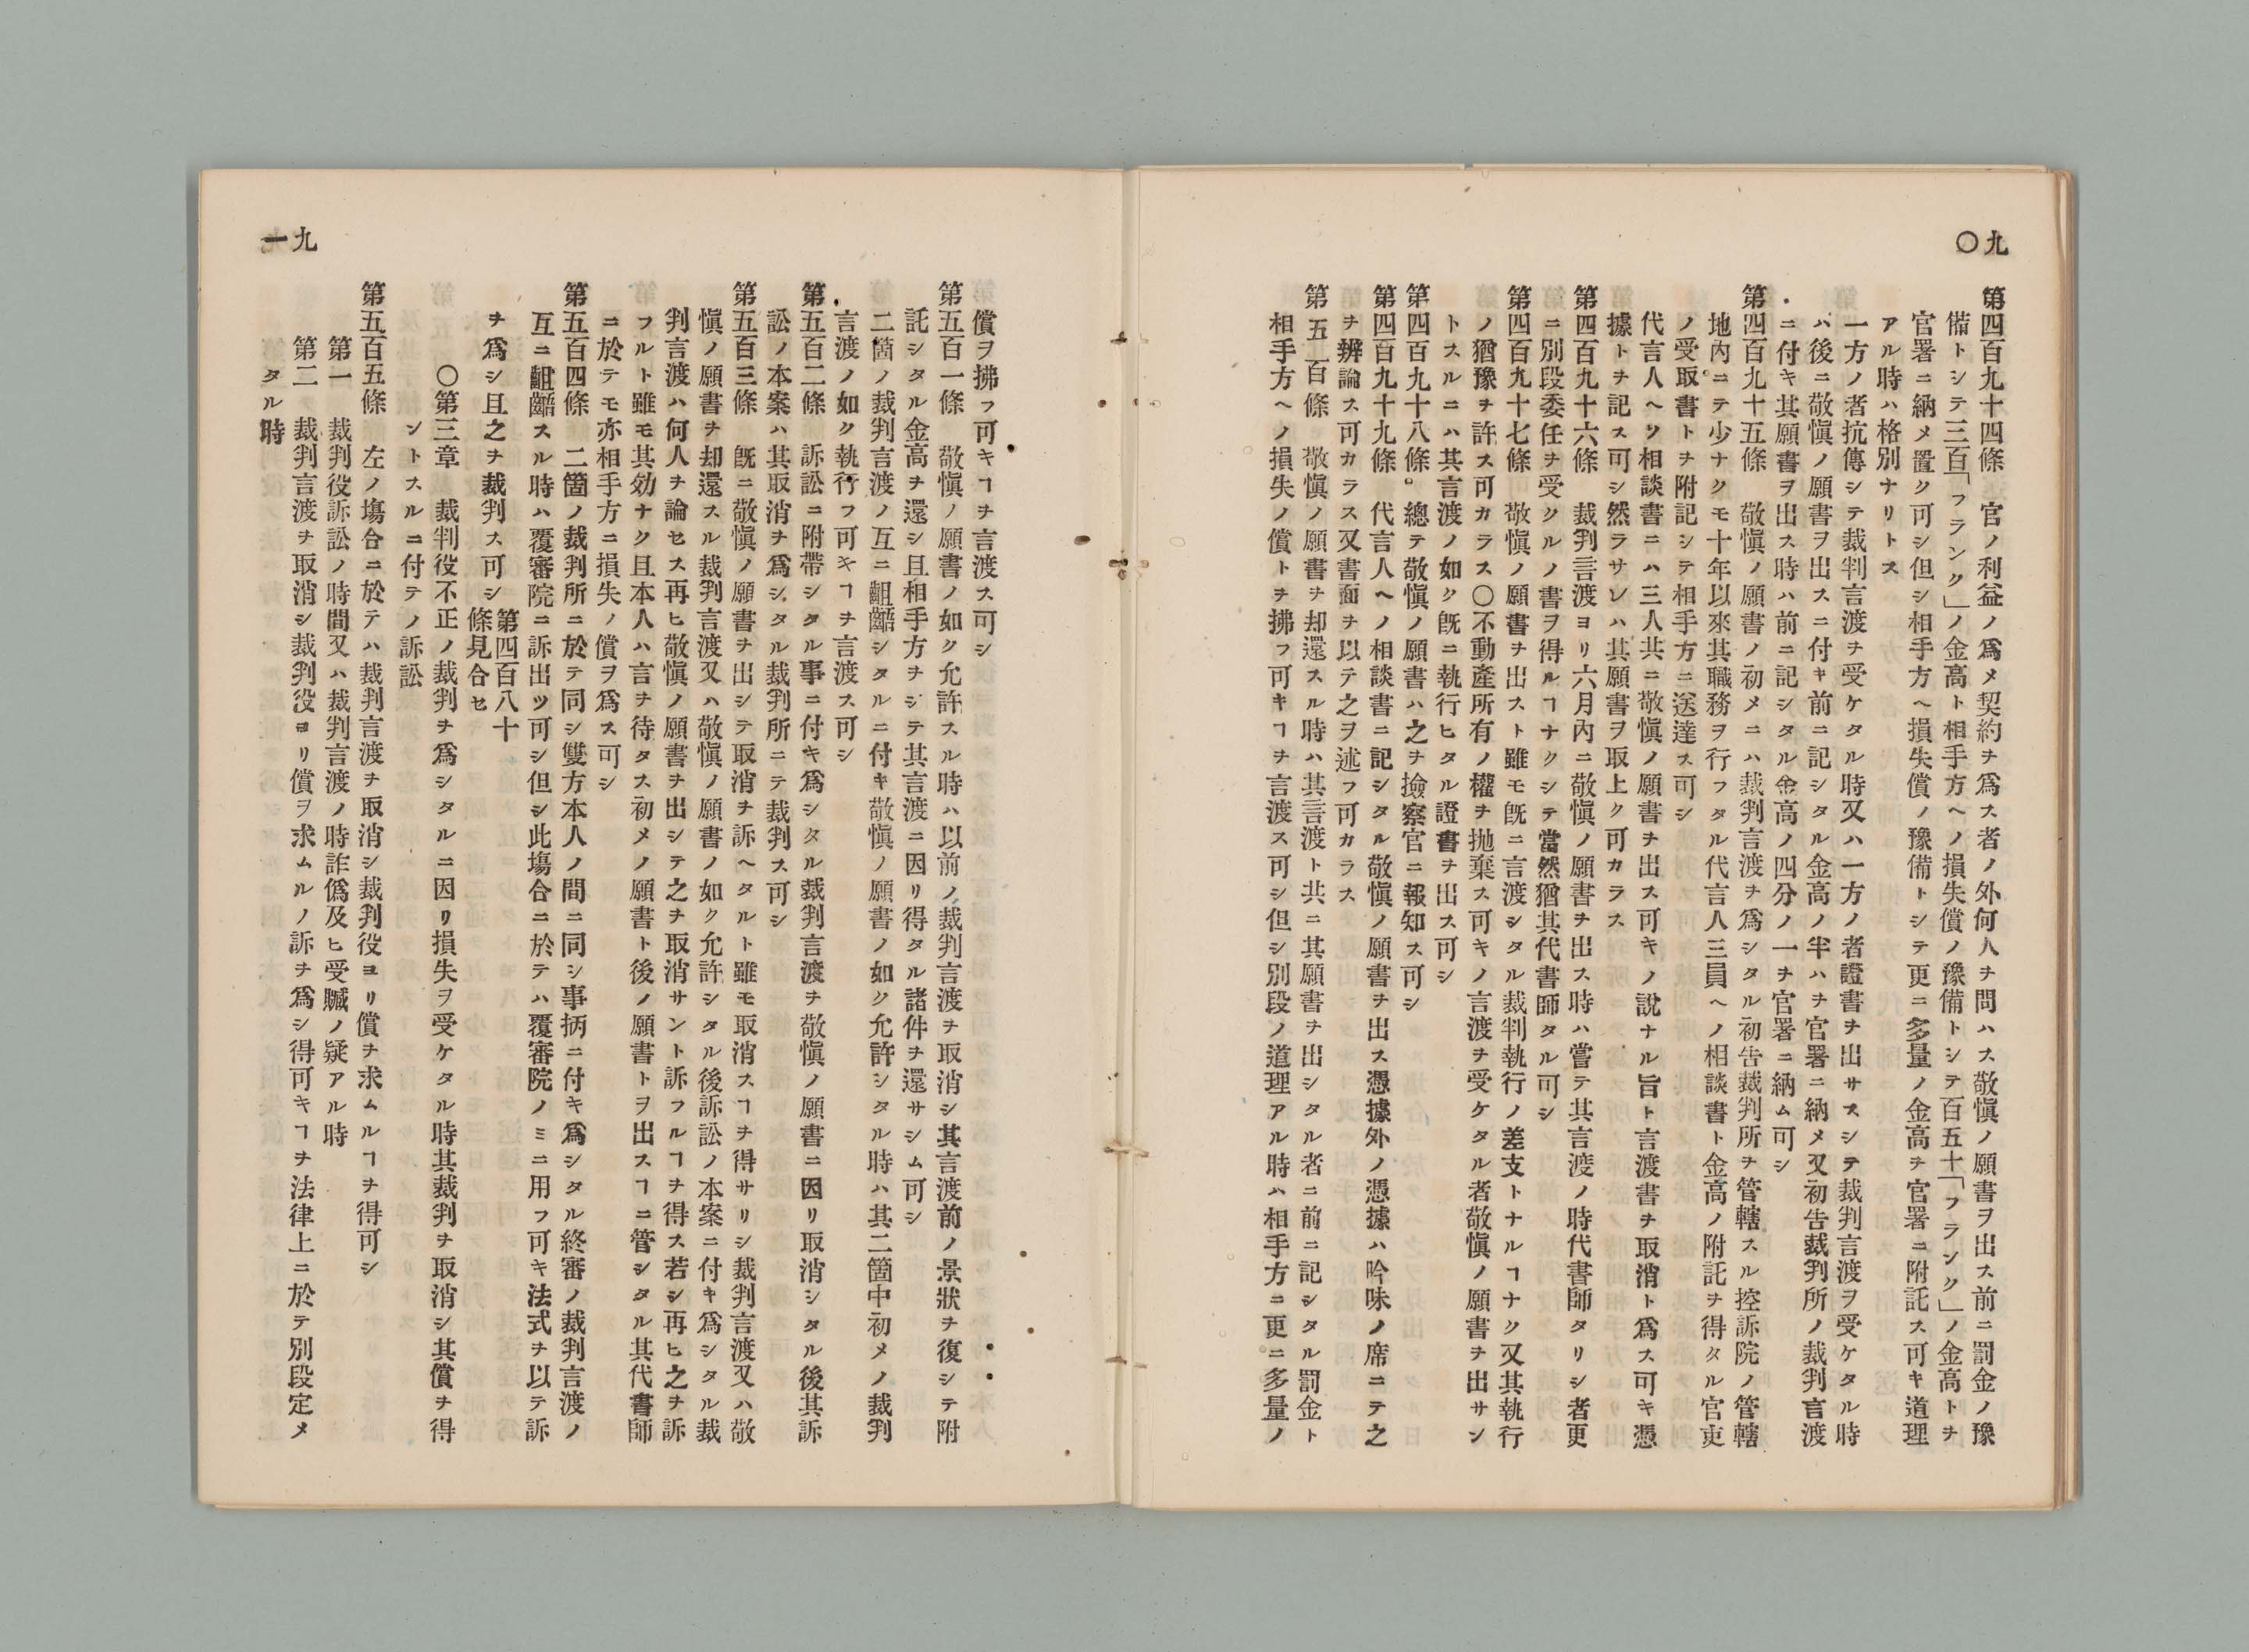 九〇
第四百九十四條　官ノ利益ノ爲メ契約ヲ爲ス者ノ外何人ヲ問ハス敬愼ノ願書ヲ出ス前ニ罰金ノ豫
備トシテ三百「フランク」ノ金高ト相手方ヘノ損失償ノ豫備トシテ百五十「フランク」ノ金高トヲ
官署ニ納メ置ク可シ但シ相手方ヘ損失償ノ豫備トシテ更ニ多量ノ金高ヲ官署ニ附託ス可キ道理
アル時ハ格別ナリトス
一方ノ者抗傳シテ裁判言渡ヲ受ケタル時又ハ一方ノ者證書ヲ出サスシテ裁判言渡ヲ受ケタル時
ハ後ニ敬愼ノ願書ヲ出スニ付キ前ニ記シタル金高ノ半ハヲ官署ニ納メ又初告裁判所ノ裁判言渡
ニ付キ其願書ヲ出ス時ハ前ニ記シタル金高ノ四分ノ一ヲ官署ニ納ム可シ
第四百九十五條　敬愼ノ願書ノ初メニハ裁判言渡ヲ爲シタル初告裁判所ヲ管轄スル控訴院ノ管轄
地內ニテ少ナクモ十年以來其職務ヲ行フタル代言人三員ヘノ相談書ト金高ノ附託ヲ得タル官吏
ノ受取書トヲ附記シテ相手方ニ送達ス可シ
代言人ヘノ相談書ニハ三人共ニ敬愼ノ願書ヲ出ス可キノ說ナル旨ト言渡書ヲ取消ト爲ス可キ憑
據トヲ記ス可シ然ラサレハ其願書ヲ取上ク可カラス
第四百九十六條　裁判言渡ヨリ六月內ニ敬愼ノ願書ヲ出ス時ハ嘗テ其言渡ノ時代書師タリシ者更
ニ別段委任ヲ受クルノ書ヲ得ルヿナクシテ當然猶其代書師タル可シ
第四百九十七條　敬愼ノ願書ヲ出スト雖モ旣ニ言渡シタル裁判執行ノ差支トナルヿナク又其執行
ノ猶豫ヲ許ス可カラス〇不動產所有ノ權ヲ抛棄ス可キノ言渡ヲ受ケタル者敬愼ノ願書ヲ出サン
トスルニハ其言渡ノ如ク旣ニ執行ヒタル證書ヲ出ス可シ
第四百九十八條。總テ敬愼ノ願書ハ之ヲ撿察官ニ報知ス可シ
第四百九十九條　代言人ヘノ相談書ニ記シタル敬愼ノ願書ヲ出ス憑據外ノ憑據ハ吟味ノ席ニテ之
ヲ辨論ス可カラス又書面ヲ以テ之ヲ述フ可カラス
第五百條　敬愼ノ願書ヲ却還スル時ハ其言渡ト共ニ其願書ヲ出シタル者ニ前ニ記シタル罰金ト
相手方ヘノ損失ノ償トヲ拂フ可キヿヲ言渡ス可シ但シ別段ノ道理アル時ハ相手方ニ更ニ多量ノ
九一
償ヲ拂フ可キヿヲ言渡ス可シ
第五百一條　敬愼ノ願書ノ如ク允許スル時ハ以前ノ裁判言渡ヲ取消シ其言渡前ノ景狀ヲ復シテ附
託シタル金高ヲ還シ且相手方ヲシテ其言渡ニ因リ得タル諸件ヲ還サシム可シ
二箇ノ裁判言渡ノ互ニ齟齬シタルニ付キ敬愼ノ願書ノ如ク允許シタル時ハ其二箇中初メノ裁判
言渡ノ如ク執行フ可キヿヲ言渡ス可シ
第五百二條　訴訟ニ附帶シタル事ニ付キ爲シタル裁判言渡ヲ敬愼ノ願書ニ因リ取消シタル後其訴
訟ノ本案ハ其取消ヲ爲シタル裁判所ニテ裁判ス可シ
第五百三條　旣ニ敬愼ノ願書ヲ出シテ取消ヲ訴ヘタルト雖モ取消スヿヲ得サリシ裁判言渡又ハ敬
愼ノ願書ヲ却還スル裁判言渡又ハ敬愼ノ願書ノ如ク允許シタル後訴訟ノ本案ニ付キ爲シタル裁
判言渡ハ何人ヲ論セス再ヒ敬愼ノ願書ヲ出シテ之ヲ取消サント訴フルヿヲ得ス若シ再ヒ之ヲ訴
フルト雖モ其効ナク且本人ハ言ヲ待タス初メノ願書ト後ノ願書トヲ出スヿニ管シタル其代書師
ニ於テモ亦相手方ニ損失ノ償ヲ爲ス可シ
第五百四條　二箇ノ裁判所ニ於テ同シ雙方本人ノ間ニ同シ事柄ニ付キ爲シタル終審ノ裁判言渡ノ
互ニ齟齬スル時ハ覆審院ニ訴出ツ可シ但シ此塲合ニ於テハ覆審院ノミニ用フ可キ法式ヲ以テ訴
ヲ爲シ且之ヲ裁判ス可シ　第四百八十
條見合セ
〇第三章　裁判役不正ノ裁判ヲ爲シタルニ因リ損失ヲ受ケタル時其裁判ヲ取消シ其償ヲ得
ントスルニ付テノ訴訟
第五百五條　左ノ塲合ニ於テハ裁判言渡ヲ取消シ裁判役ヨリ償ヲ求ムルヿヲ得可シ
第一　裁判役訴訟ノ時間又ハ裁判言渡ノ時詐僞及ヒ受贓ノ疑アル時
第二　裁判言渡ヲ取消シ裁判役ヨリ償ヲ求ムルノ訴ヲ爲シ得可キヿヲ法律上ニ於テ別段定メ
タル時